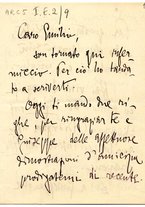 ARC5 I.E.2/9
Caro Emilio,
son tornato qui infer
miccio. Per ciò ho tarda
to a scriverti.
Oggi ti mando due ri
ghe, per ringraziar te e
Giuseppe delle affettuose
dimostrazioni d'amicizia
prodigatemi di recente.